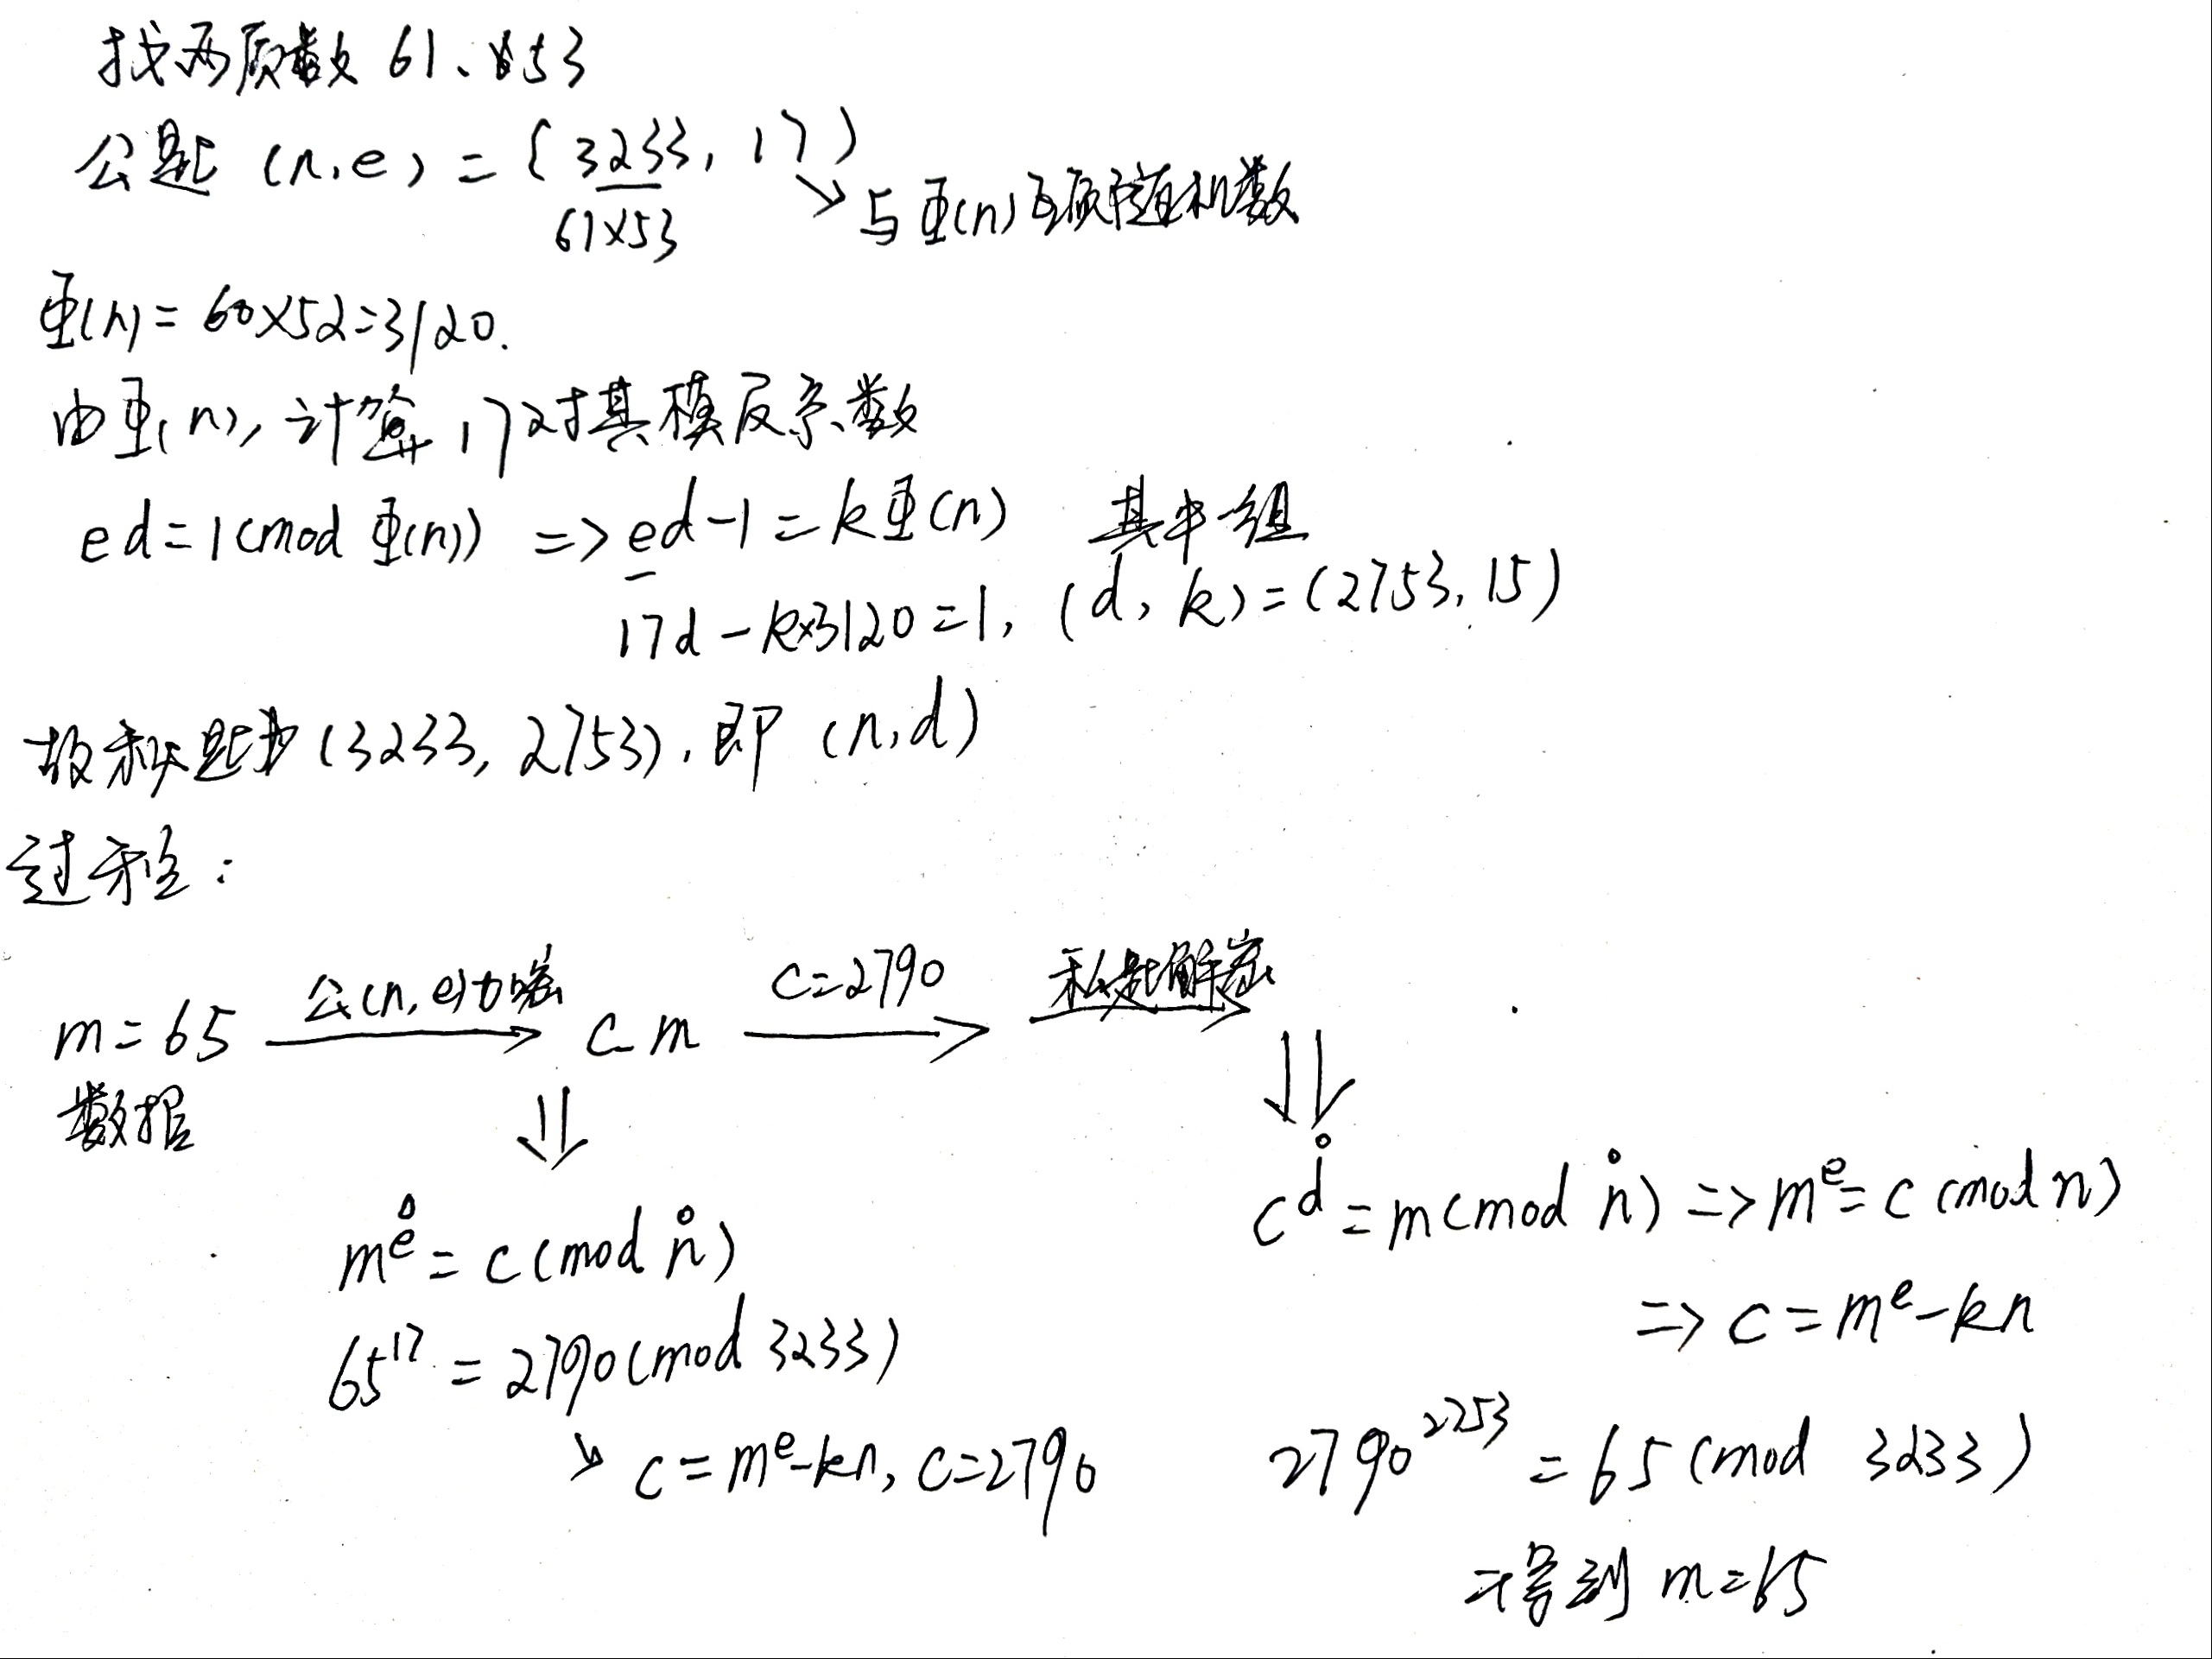 找两质数 61、53
公匙 (n,e) = (3233, 17)
61×53
↘ 与Φ(n)互质随机数
Φ(n) = 60×52=3120.
由Φ(n), 计算 17对其模反系数
ed=1(mod Φ(n)) => ed-1=kΦ(n) 其中一组
17d-k×3120=1, (d, k)=(2753, 15)
故私匙为(3233, 2753), 即 (n,d)
过程:
m=65 公(n,e)加密 c m c=2790 私匙解密
数据
m^e = c(mod n)
65^17 = 2790(mod 3233)
↘ c=m^e-kn, c=2790
c^d=m(mod n) => m^e=c(mod n)
=> c=m^e-kn
2790^2753 = 65(mod 3233)
得到 m=65